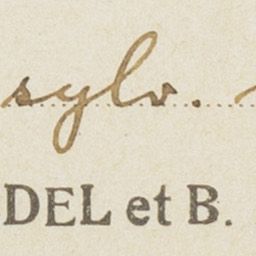 sylv.
DEL et B.